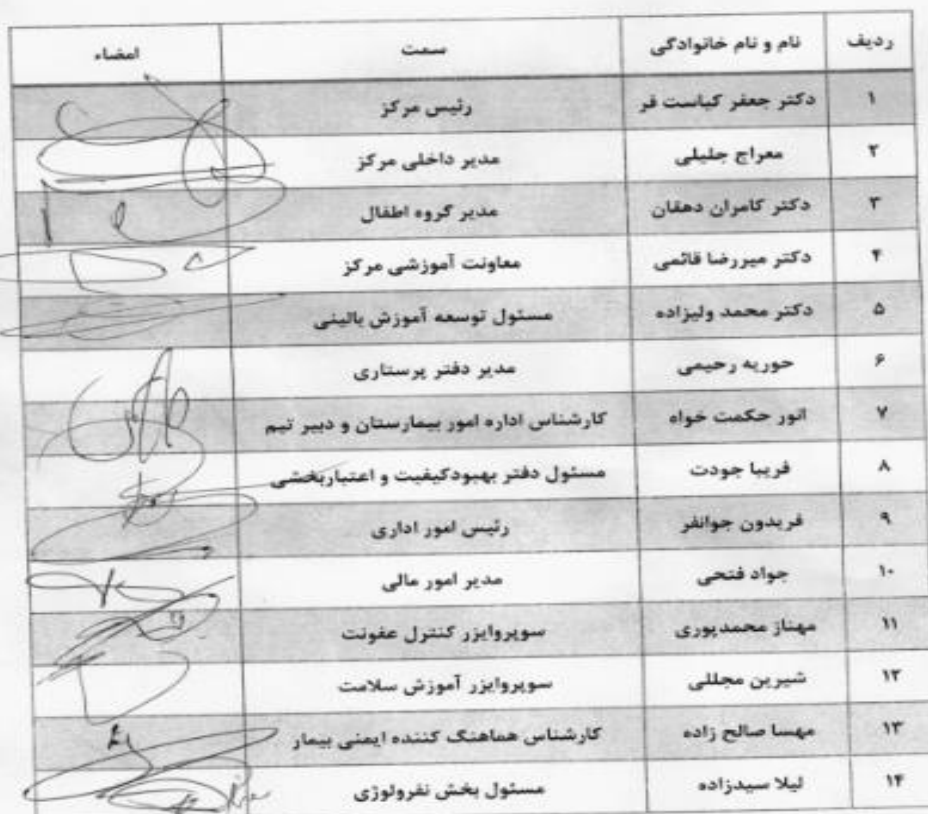 ردیف نام و نام خانوادگی سمت امضاء
۱ دکتر جعفر کیاست فر رئیس مرکز
۲ معراج جلیلی مدیر داخلی مرکز
۳ دکتر کامران دهقان مدیر گروه اطفال
۴ دکتر میررضا قائمی معاونت آموزشی مرکز
۵ دکتر محمد ولیزاده مسئول توسعه آموزش بالینی
۶ حوریه رحیمی مدیر دفتر پرستاری
۷ انور حکمت خواه کارشناس اداره امور بیمارستان و دبیر تیم
۸ فریبا جودت مسئول دفتر بهبودکیفیت و اعتباربخشی
۹ فریدون جوانفر رئیس امور اداری
۱۰ جواد فتحی مدیر امور مالی
۱۱ مهناز محمدپوری سوپروایزر کنترل عفونت
۱۲ شیرین مجللی سوپروایزر آموزش سلامت
۱۳ مهسا صالح زاده کارشناس هماهنگ کننده ایمنی بیمار
۱۴ لیلا سیدزاده مسئول بخش نفرولوژی